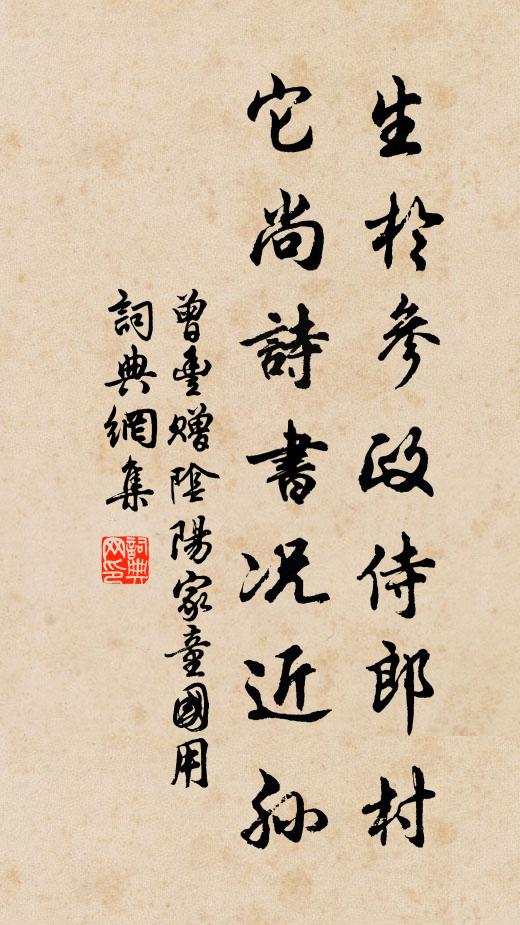 生於參政侍郎村
它尚詩書況近孫
曾豐贈陰陽家童國用
詞典網集
詞典網印